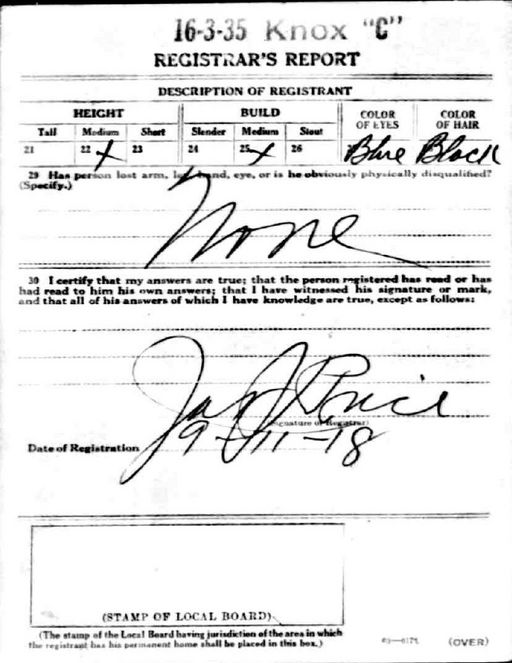 16-3-35 Knox "C"
REGISTRAR'S REPORT
DESCRIPTION OF REGISTRANT
HEIGHT BUILD COLOR OF EYES COLOR OF HAIR
Tall Medium Short Slender Medium Stout
21 22 x 23 24 25 x 26 Blue Black
29 Has person lost arm, leg, hand, eye, or is he obviously physically disqualified?
(Specify.)
None
30 I certify that my answers are true; that the person registered has read or has
had read to him his own answers; that I have witnessed his signature or mark,
and that all of his answers of which I have knowledge are true, except as follows:
Jas J Price
(Signature of Registrar)
Date of Registration 9-11-18
(STAMP OF LOCAL BOARD)
(The stamp of the Local Board having jurisdiction of the area in which
the registrant has his permanent home shall be placed in this box.)
(OVER)